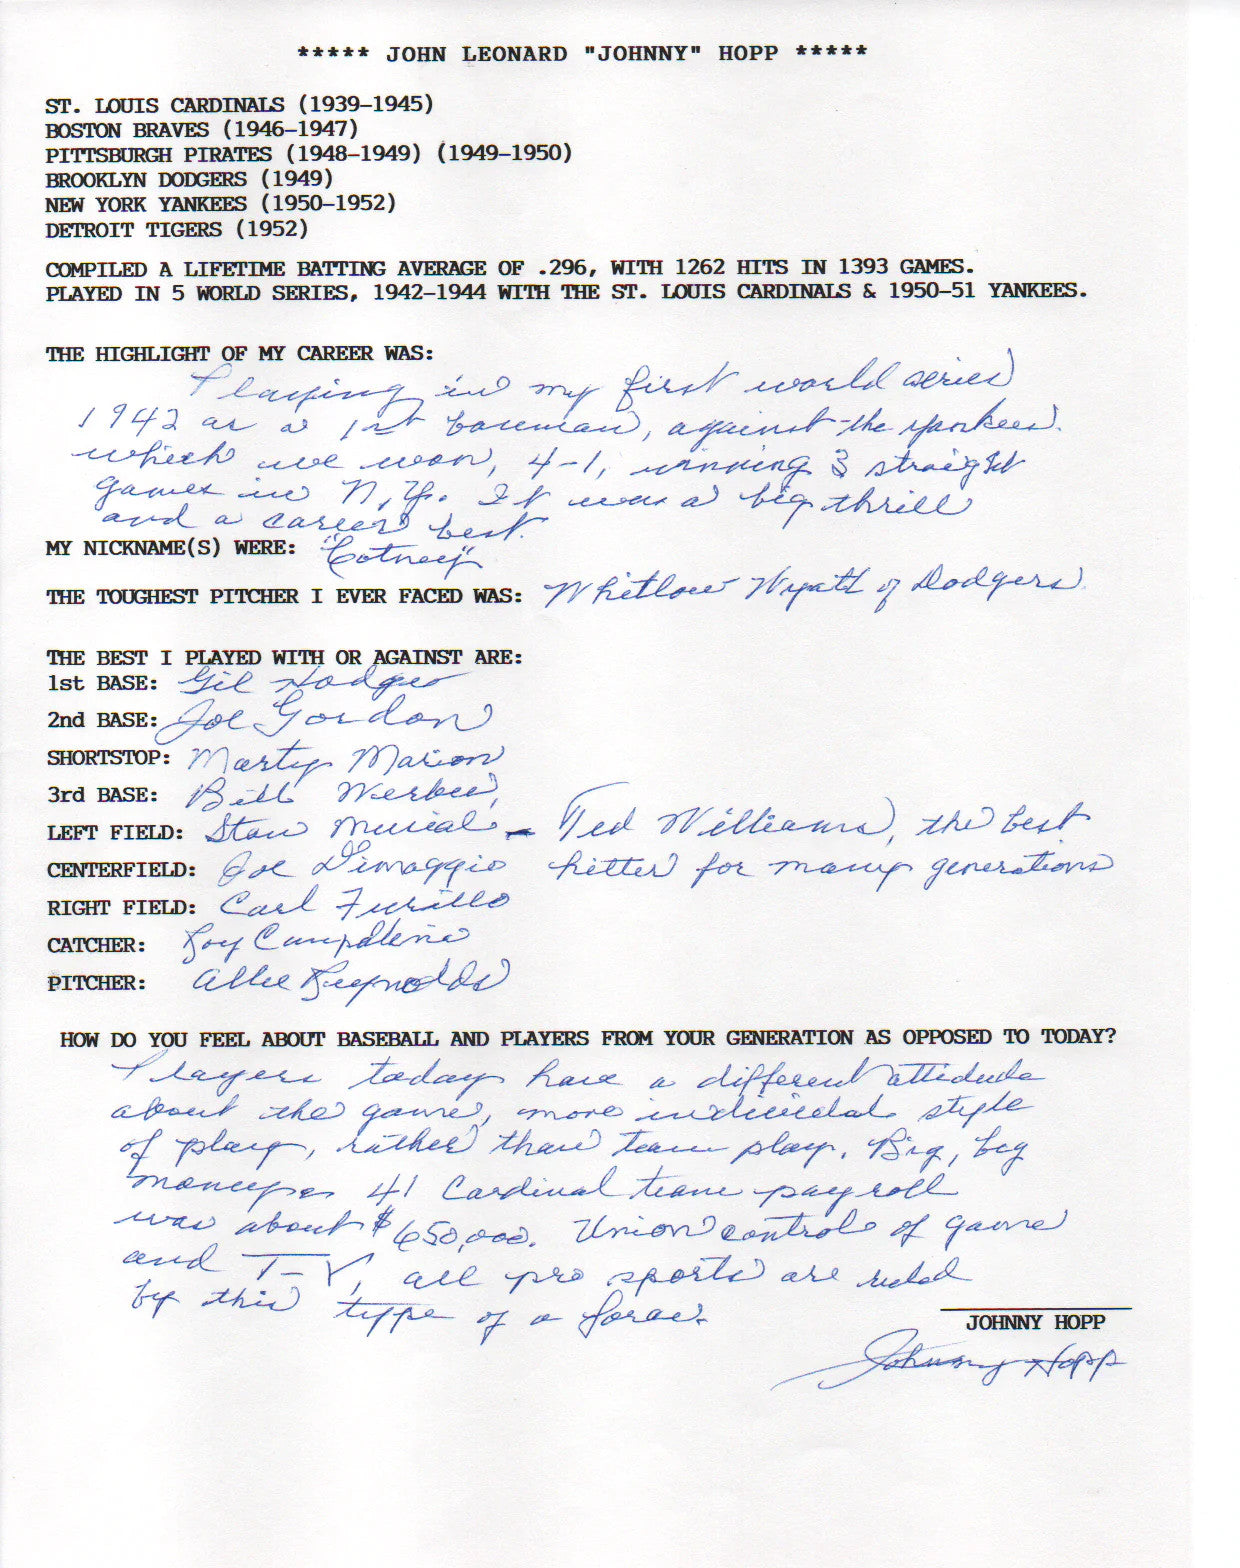 ***** JOHN LEONARD "JOHNNY" HOPP *****
ST. LOUIS CARDINALS (1939-1945)
BOSTON BRAVES (1946-1947)
PITTSBURGH PIRATES (1948-1949) (1949-1950)
BROOKLYN DODGERS (1949)
NEW YORK YANKEES (1950-1952)
DETROIT TIGERS (1952)
COMPILED A LIFETIME BATTING AVERAGE OF .296, WITH 1262 HITS IN 1393 GAMES.
PLAYED IN 5 WORLD SERIES, 1942-1944 WITH THE ST. LOUIS CARDINALS & 1950-51 YANKEES.
THE HIGHLIGHT OF MY CAREER WAS:
Playing in my first world series
1942 as a 1st baseman, against the yankees.
which we won, 4-1, winning 3 straight
games in N.Y. It was a big thrill
and a career best.
MY NICKNAME(S) WERE: "Cotney"
THE TOUGHEST PITCHER I EVER FACED WAS: Whitlow Wyatt of Dodgers
THE BEST I PLAYED WITH OR AGAINST ARE:
1st BASE: Gil Hodges
2nd BASE: Joe Gordon
SHORTSTOP: Marty Marion
3rd BASE: Bill Werber,
LEFT FIELD: Stan Musial - Ted Williams, the best
CENTERFIELD: Joe Dimaggio hitter for many generations
RIGHT FIELD: Carl Furillo
CATCHER: Roy Campalena
PITCHER: Allie Reynolds
HOW DO YOU FEEL ABOUT BASEBALL AND PLAYERS FROM YOUR GENERATION AS OPPOSED TO TODAY?
Players today have a different attidude
about the game, more individal style
of play, rather than team play. Big, big
41 Cardinal team payroll
was about $650,000. Union control of game
and T-V, all pro sports are ruled
by this type of a force.
JOHNNY HOPP
Johnny Hopp